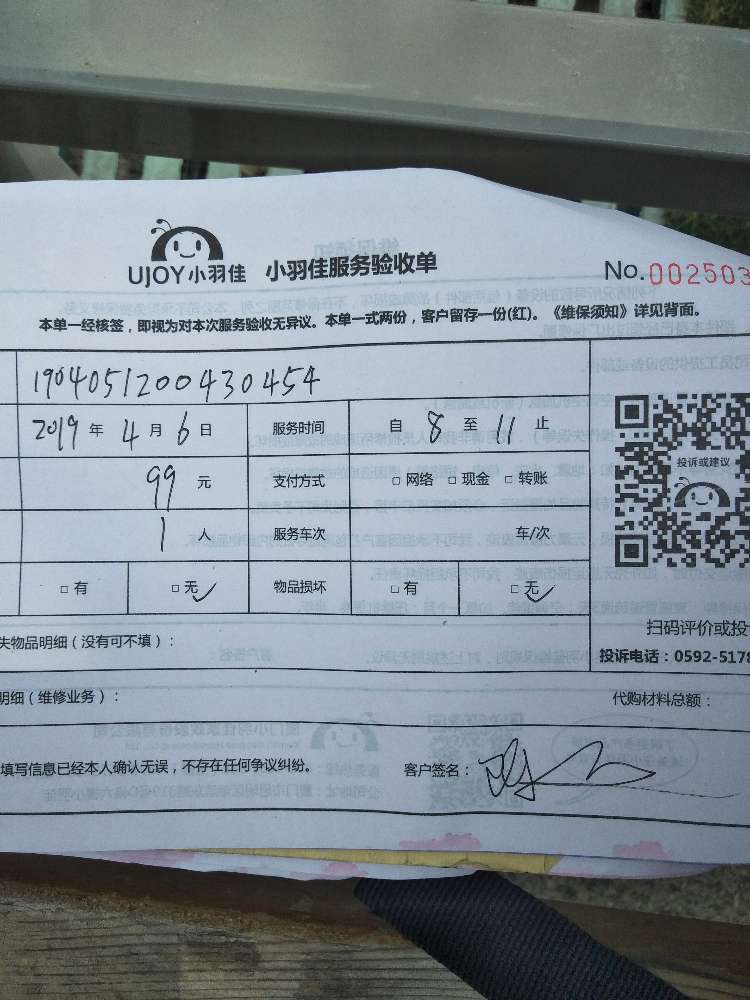 UJOY小羽佳 小羽佳服务验收单 No.002503
本单一经核签，即视为对本次服务验收无异议。本单一式两份，客户留存一份(红)。《维保须知》详见背面。
1904051200430454
2019 年 4 月 6 日 服务时间 自 8 至 11 止
99 元 支付方式 □ 网络 □ 现金 □ 转账
1 人 服务车次 车/次
□ 有 □ 无 ✓ 物品损坏 □ 有 □ 无 ✓
投诉或建议
扫码评价或投
失物品明细（没有可不填）：
投诉电话：0592-5178
明细（维修业务）： 代购材料总额：
填写信息已经本人确认无误，不存在任何争议纠纷。 客户签名：